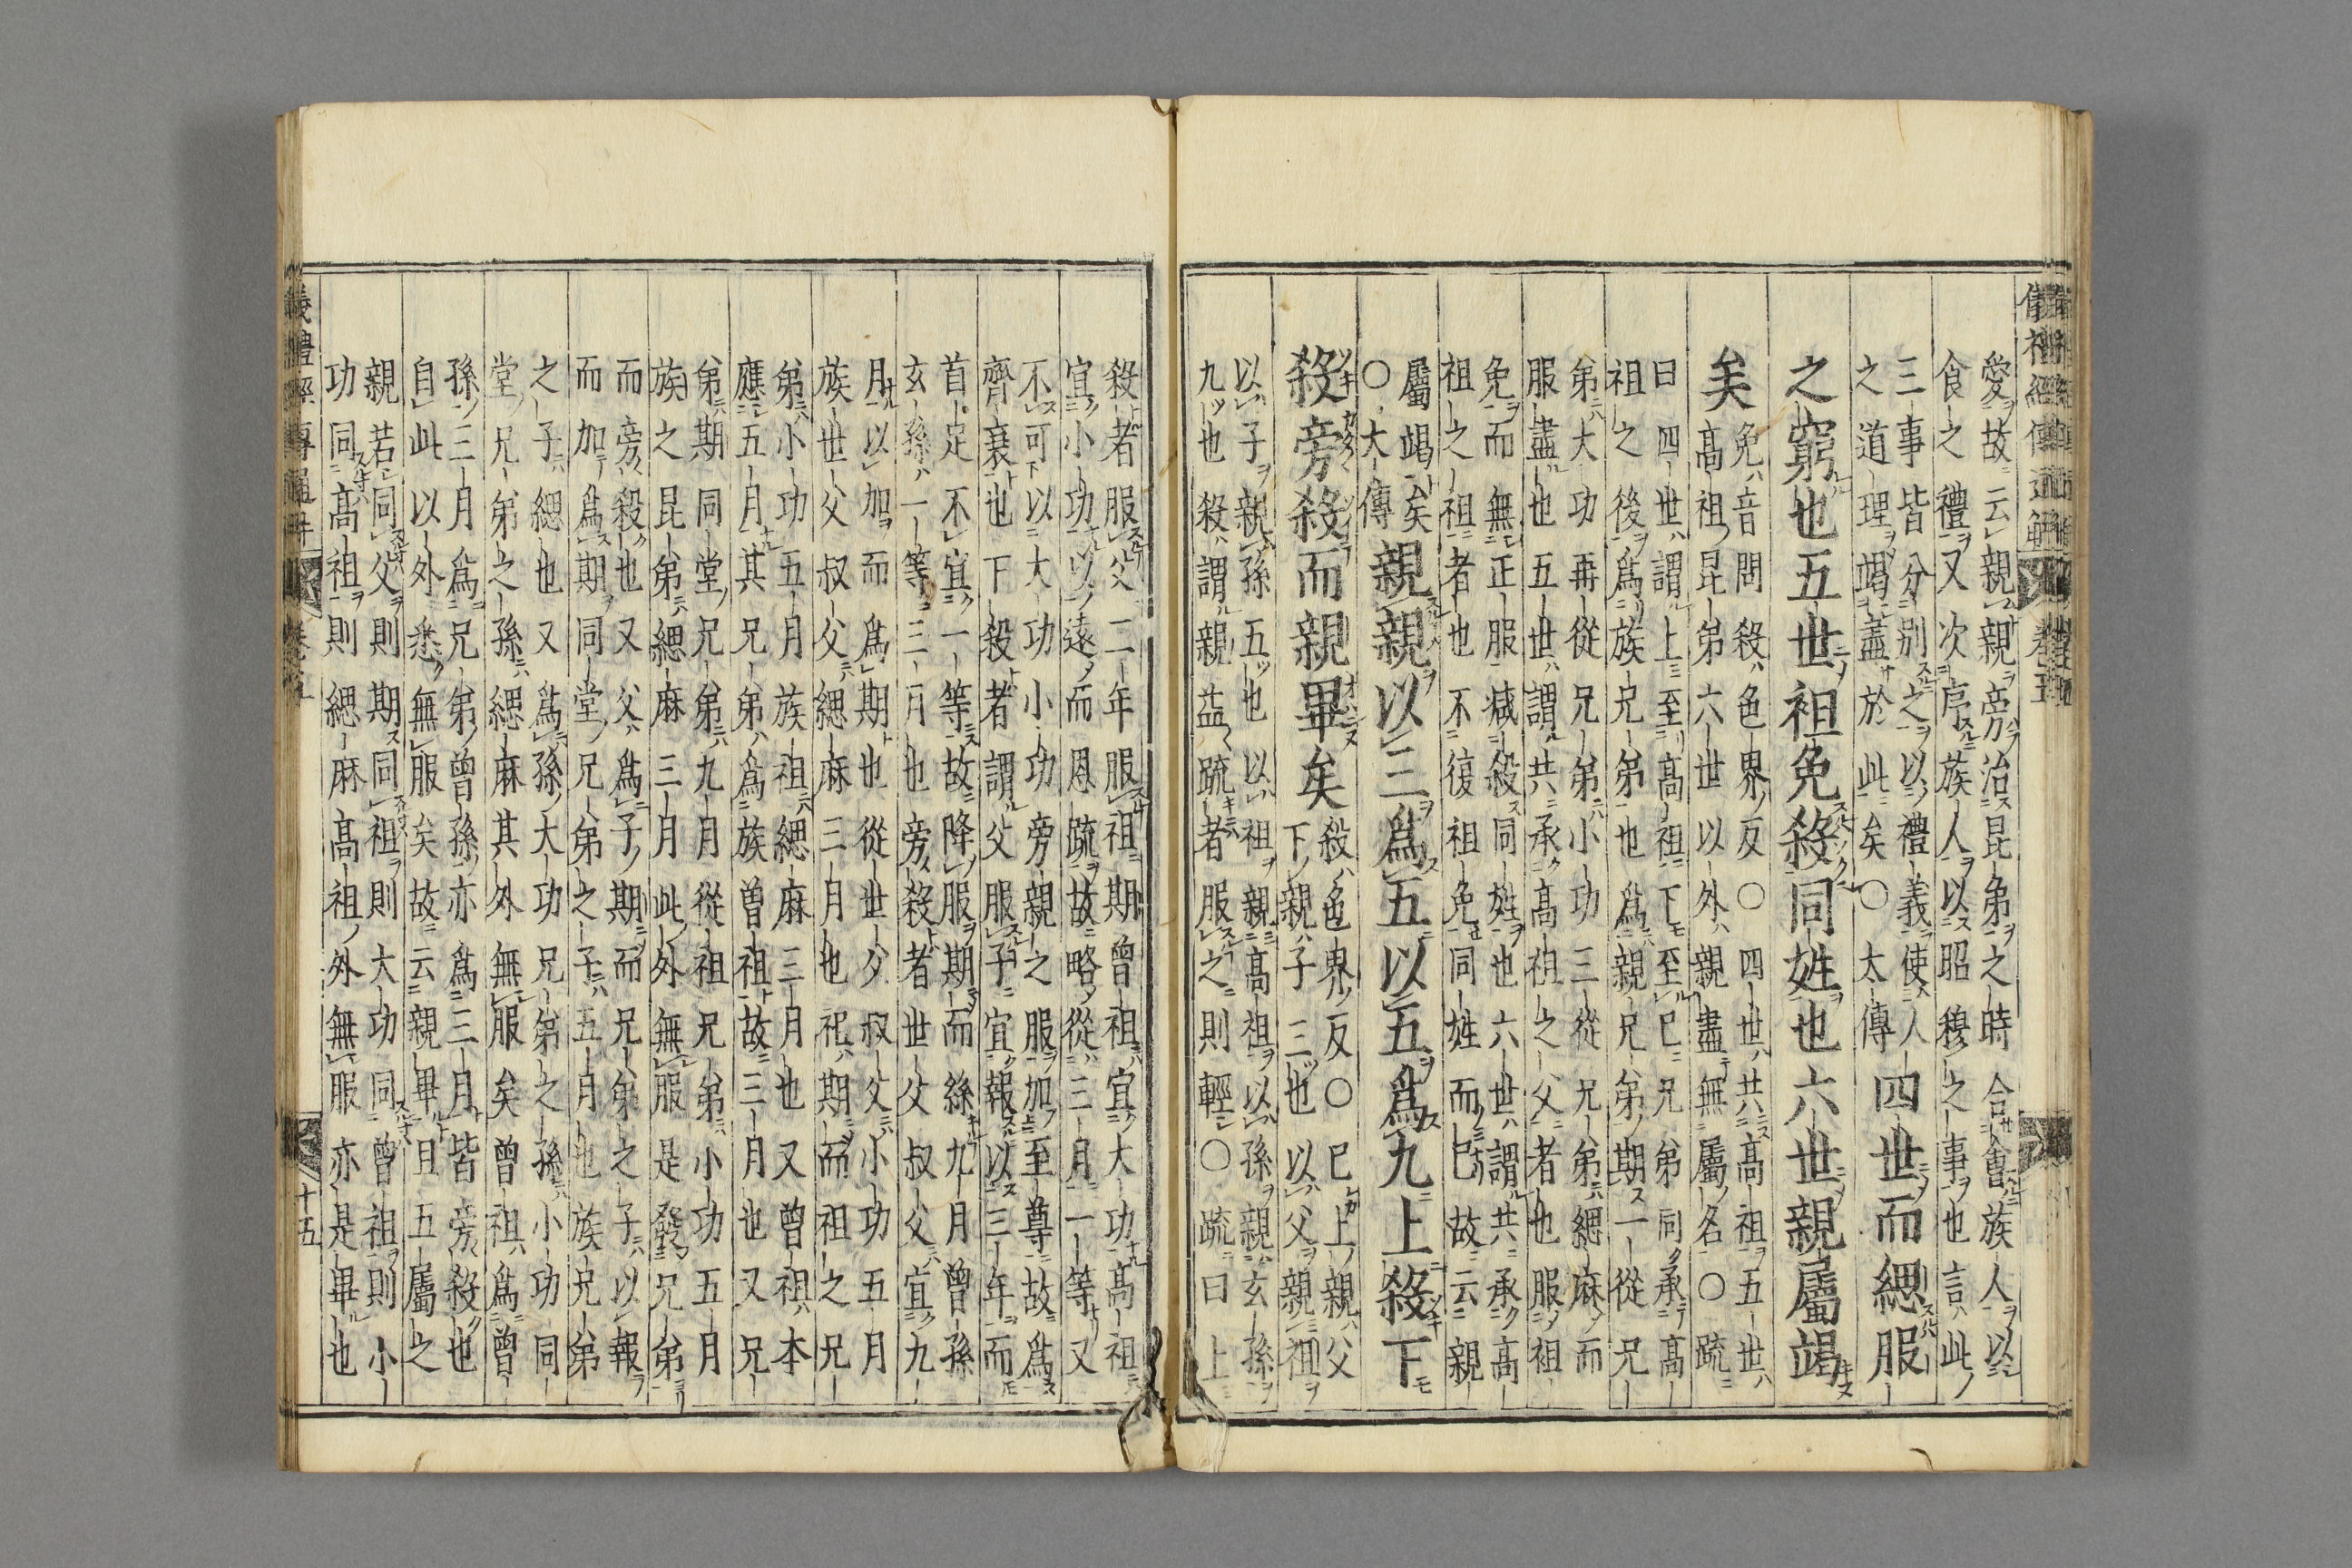 儀禮經傳通解 卷五
愛故云親親旁治昆弟之時合會族人以
食之禮又次序族人以昭穆之事也言此
三事皆分別之以禮義使人
之道理竭盡於此矣○大傳
四世而緦服
之窮也五世袒免殺同姓也六世親屬竭
矣
免音問殺色界反○四世共高祖五世
高祖昆弟六世以外親盡無屬名○疏
曰四世謂上至高祖下至己兄弟同承高
祖之後為族兄弟也為親兄弟期一從兄
弟大功再從兄弟小功三從兄弟緦麻而
服盡也五世謂共承高祖之父者也服袒
免而無正服減殺同姓也六世謂共承高
祖之祖者也不復袒免同姓而已故云親
屬竭矣
○大傳
親親以三為五以五為九上殺下
殺旁殺而親畢矣
殺色界反○己上親父
下親子三也以父親祖
以子親孫五也以祖親高祖以孫親玄孫
九也殺謂親益疏者服之則輕○疏曰上
殺者服父二年服祖期曾祖宜大功高祖
宜小功以遠而恩疏故略從三月一等又
不可以大功小功旁親之服加至尊故為
齊衰也下殺者謂父服子宜報以三年而
首足不宜一等故降服期而絲九月曾孫
玄孫一等三月也旁殺者世父叔父宜九
月以加而為期也從世父叔父小功五月
族世父叔父緦麻三月也祀期而祖之兄
弟小功五月族祖緦麻三月也又曾祖本
應五月其兄弟為族曾祖故三月也又兄
弟期同堂兄弟九月從祖兄弟小功五月
族之昆弟緦麻三月此外無服是發兄弟
而旁殺也又父為子期而兄弟之子以報
而加為期同堂兄弟之子五月也族兄弟
之子緦也又為孫大功兄弟之孫小功同
堂兄弟之孫緦麻其外無服矣曾祖為曾
孫三月為兄弟曾孫亦為三月皆旁殺也
自此以外悉無服矣故云親畢且五屬之
親若同父則期同祖則大功同曾祖則小
功同高祖則緦麻高祖外無服亦是畢也
儀禮經傳通解 卷五 十五